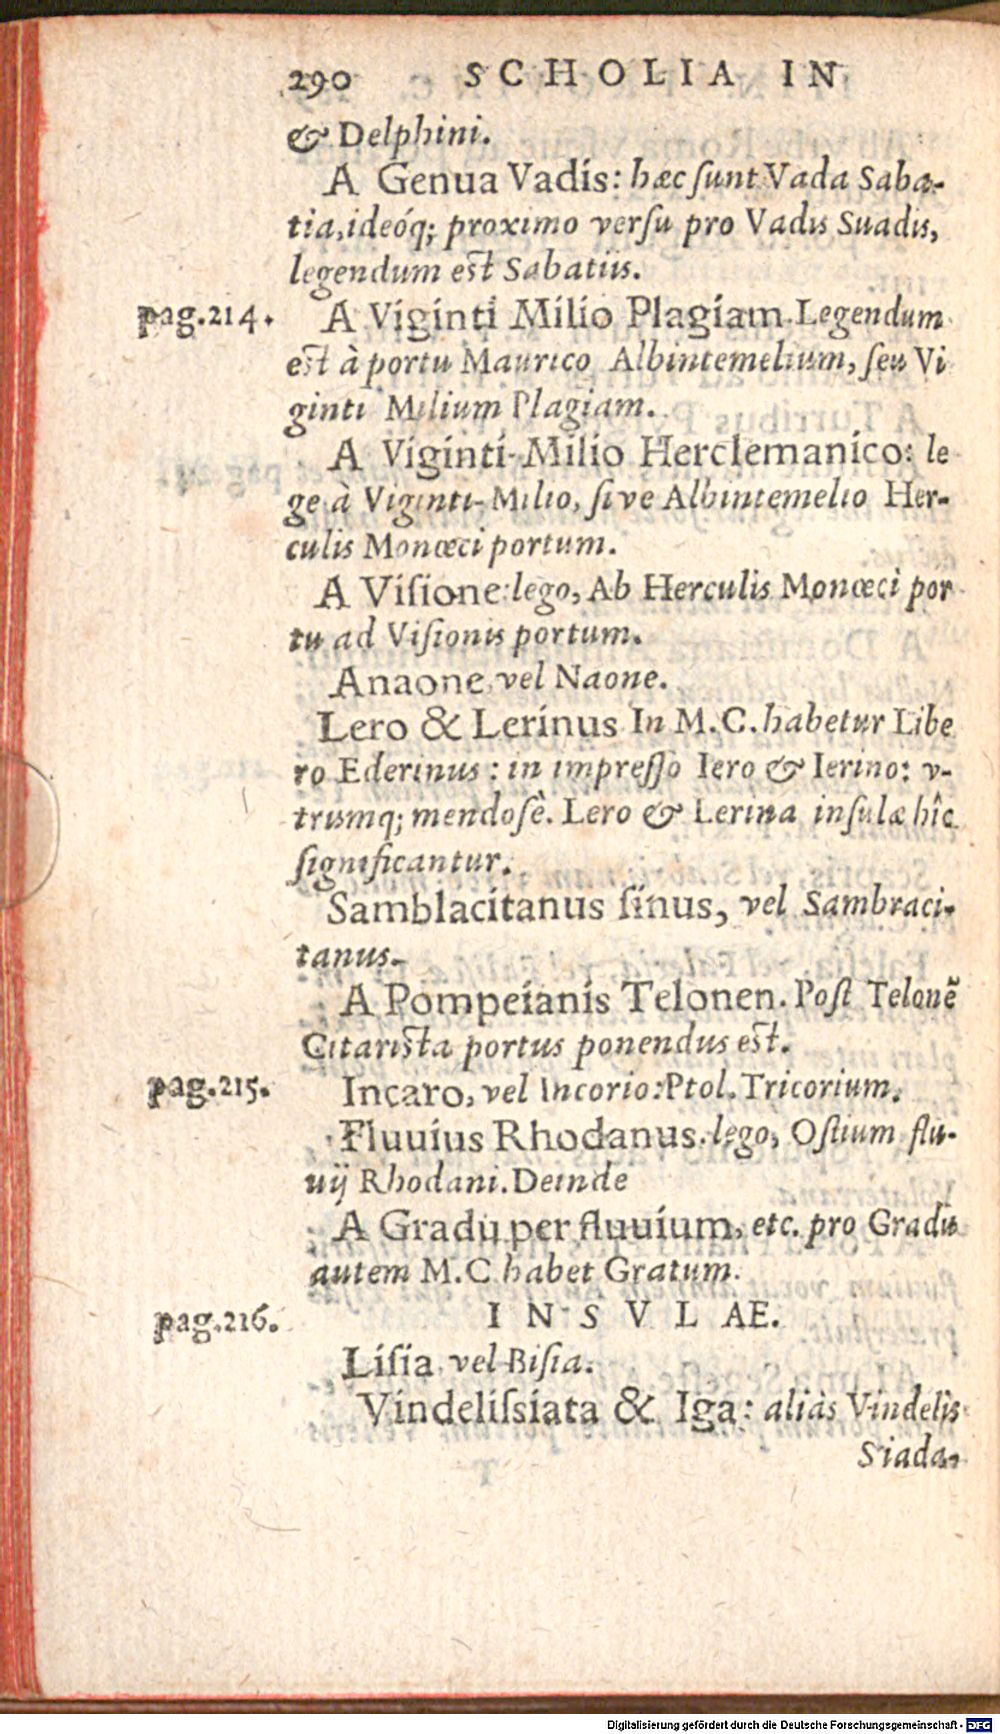 290 SCHOLIA IN
& Delphini.
A Genua Vadis: hæc ſunt Vada Saba-
tia, ideóq; proximo verſu pro Vadis Suadis,
legendum est Sabatiis.
pag.214. A Viginti Milio Plagiam. Legendum
est à portu Maurico Albintemelium, ſeu Vi
ginti Milium Plagiam.
A Viginti-Milio Herclemanico: le
ge à Viginti-Milio, ſive Albintemelio Her-
culis Monœci portum.
A Viſione: lego, Ab Herculis Monœci por
tu ad Viſionis portum.
Anaone, vel Naone.
Lero & Lerinus In M.C. habetur Libe
ro Ederinus: in impreſſo Iero & Ierino: v-
trumq; mendoſè. Lero & Lerina inſulæ hîc
significantur.
Samblacitanus ſinus, vel Sambraci-
tanus.
A Pompeianis Telonen. Poſt Telonẽ
Citarista portus ponendus est.
pag.215. Incaro, vel Incorio: Ptol. Tricorium.
Fluvius Rhodanus. lego, Oſtium flu-
uij Rhodani. Deinde
A Gradu per fluuium, etc. pro Gradu
autem M.C habet Gratum.
INSVLAE.
pag.216. Liſia vel Biſia.
Vindeliſsiata & Iga: aliàs Vindelis
Siada,
Digitalisierung gefördert durch die Deutsche Forschungsgemeinschaft - DFG